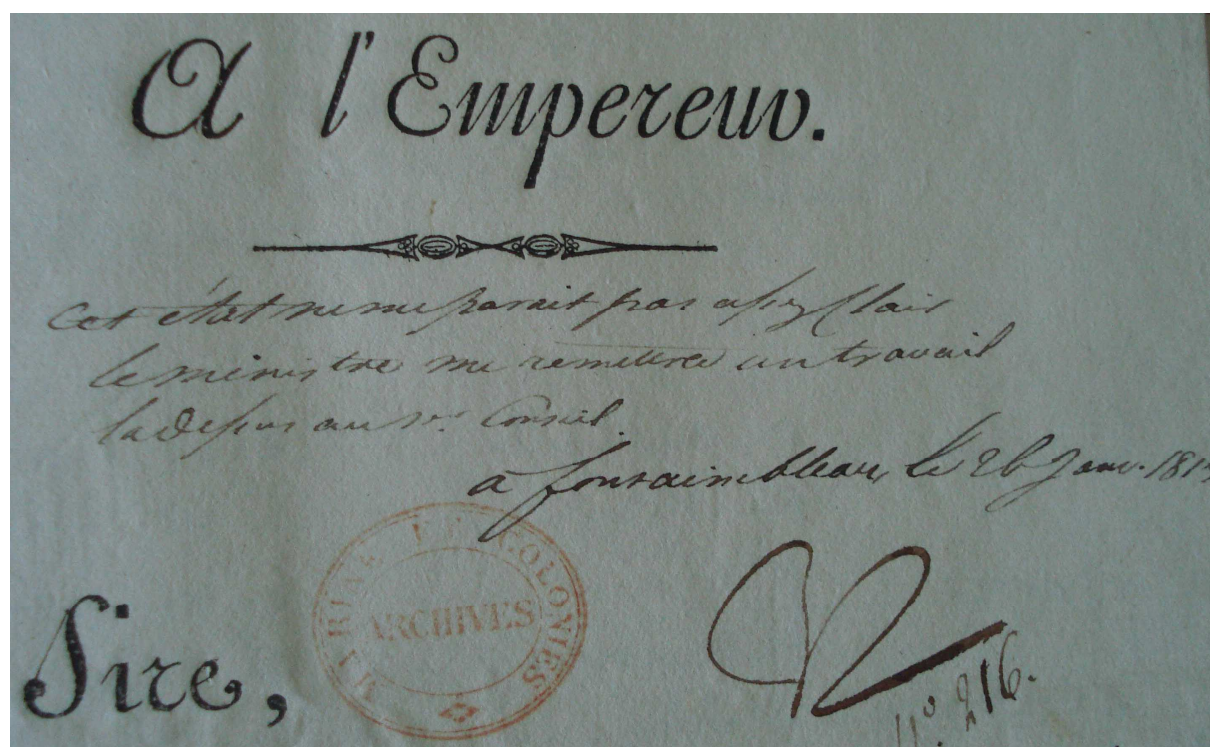 A l'Empereur.
Cet état ne me parait pas assez clair
le ministre me remettra un travail
la dessus au 1er Conseil.
à fontainebleau, le 26 Janv. 181
MARINE ET COLONIES
ARCHIVES
Sire,
N
n° 216.